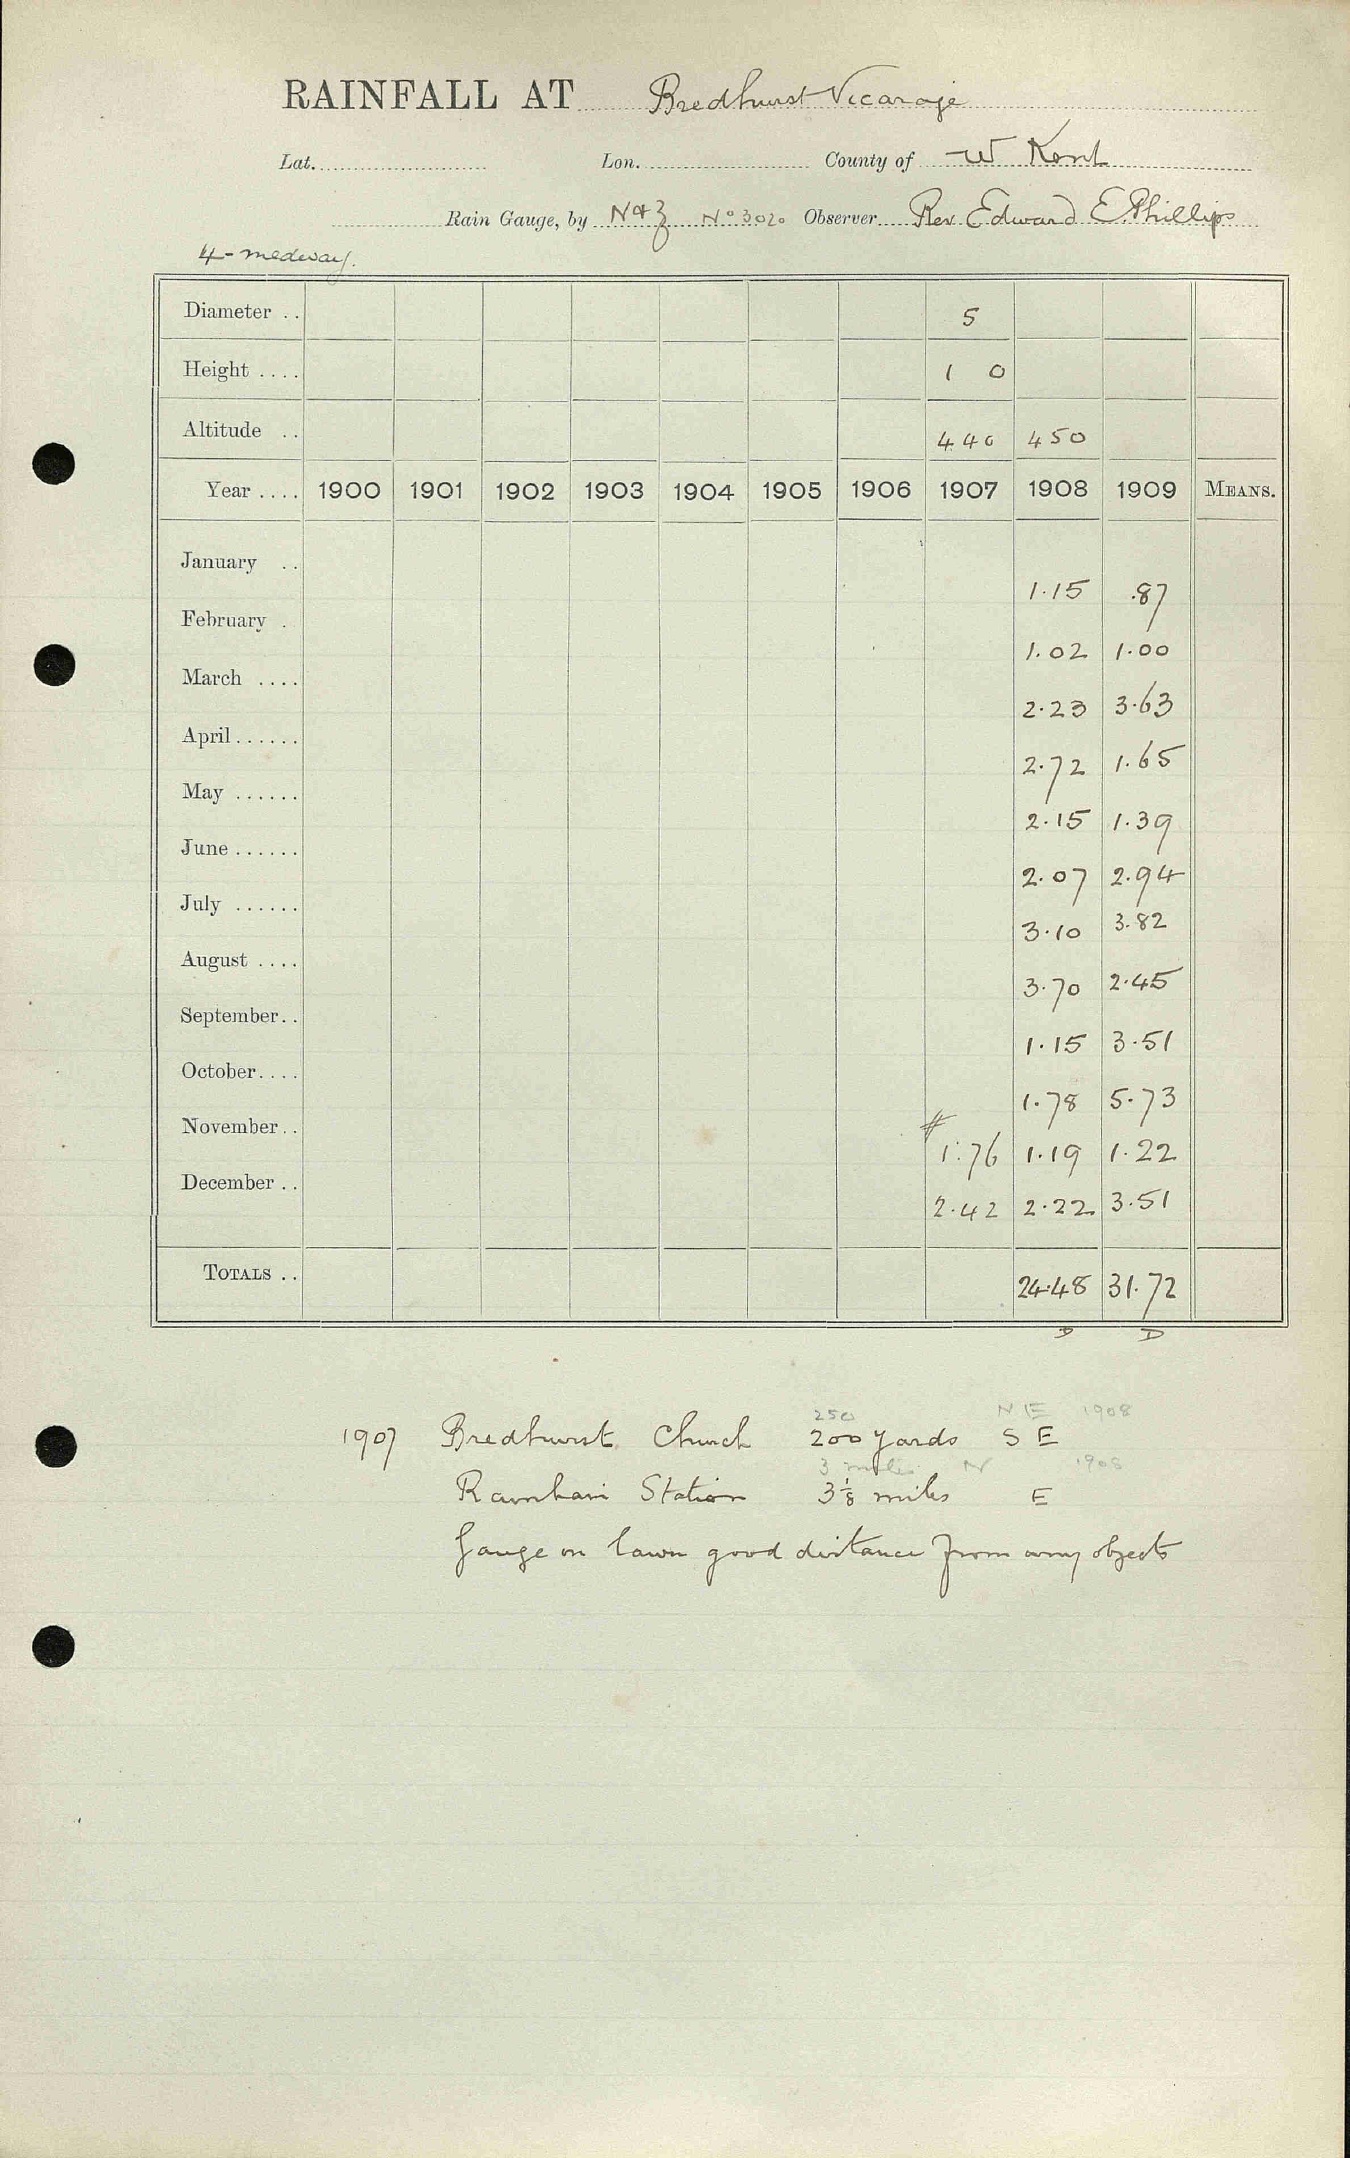 RAINFALL AT Bredhurst Vicarage
Lat. Lon. County of W Kent
Rain Gauge, by N & Z No 3020 Observer Rev. Edward E Phillips
4 - medway.
Diameter .. 5
Height .... 1 0
Altitude .. 440 450
Year .... 1900 1901 1902 1903 1904 1905 1906 1907 1908 1909 MEANS.
January .. 1.15 .87
February . 1.02 1.00
March .... 2.23 3.63
April ...... 2.72 1.65
May ...... 2.15 1.39
June ...... 2.07 2.94
July ...... 3.10 3.82
August .... 3.70 2.45
September.. 1.15 3.51
October.... 1.78 5.73
November.. # 1.76 1.19 1.22
December .. 2.42 2.22 3.51
TOTALS .. 24.48 31.72
D D
250 NE 1908
1907 Bredhurst Church 200 yards S E
3 miles N 1908
Rainham Station 3 1/8 miles E
Gauge on lawn good distance from any objects